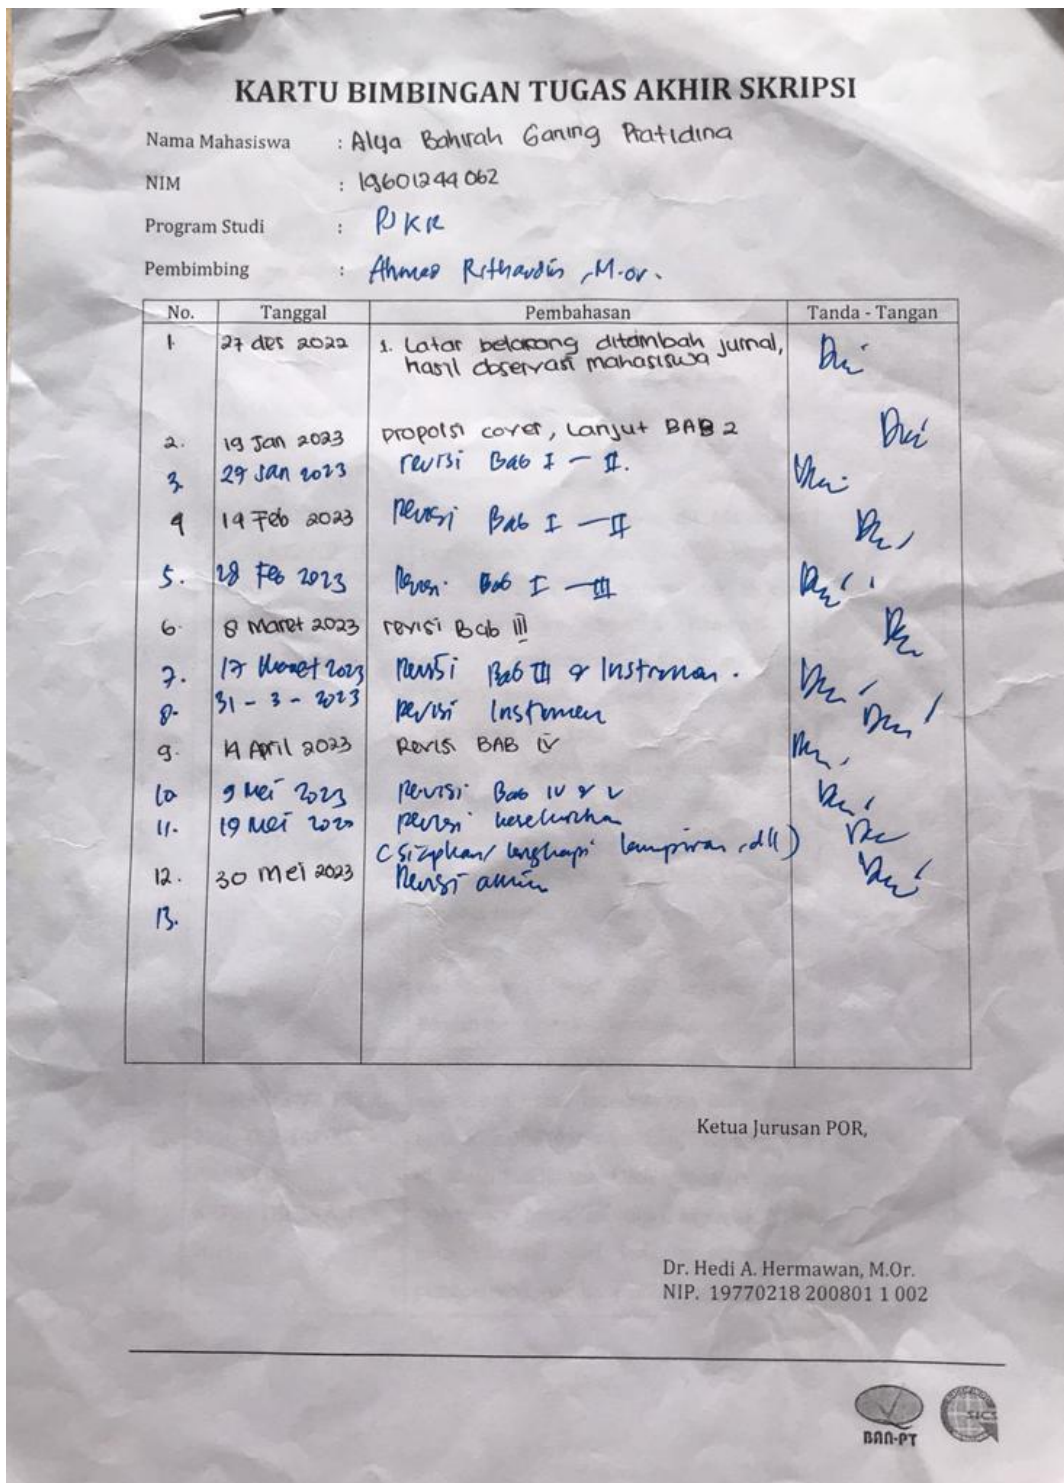 KARTU BIMBINGAN TUGAS AKHIR SKRIPSI
Nama Mahasiswa : Alya Bahirah Ganing Pratidina
NIM : 19601244062
Program Studi : PJKR
Pembimbing : Ahmad Rithaudin, M.or.
No. Tanggal Pembahasan Tanda - Tangan
1. 27 des 2022 1. Latar belakang ditambah jurnal,
hasil observasi mahasiswa
2. 19 Jan 2023 proposi cover, Lanjut BAB 2
3. 29 Jan 2023 revisi Bab I - II.
4 14 Feb 2023 Revisi Bab I - II
5. 28 Feb 2023 Revisi Bab I - III
6. 8 Maret 2023 revisi Bab III
7. 17 Maret 2023 Revisi Bab III & Instrumen.
8. 31 - 3 - 2023 Revisi Instrumen
9. 14 April 2023 Revisi BAB IV
10 9 Mei 2023 Revisi Bab IV & V
11. 19 Mei Revisi keseluruhan
(siapkan/ lengkapi lampiran, dll)
12. 30 Mei 2023 Revisi
13.
Ketua Jurusan POR,
Dr. Hedi A. Hermawan, M.Or.
NIP. 19770218 200801 1 002
BAN-PT